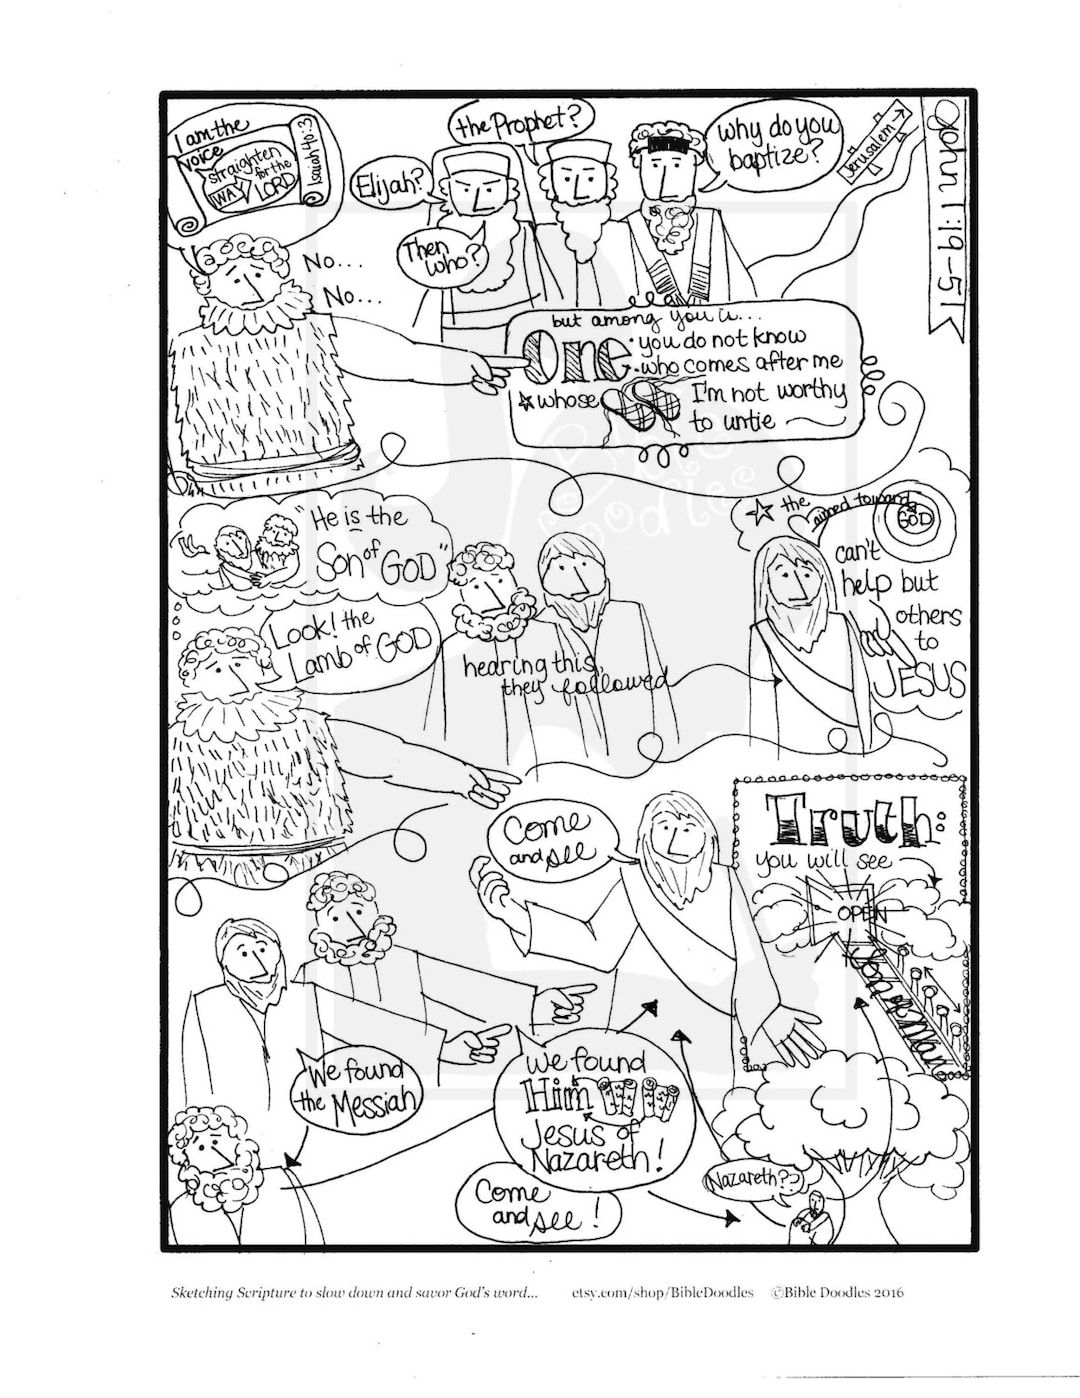 I am the
voice
straighten
for the
WAY
LORD
Isaiah 40:3
the Prophet?
Elijah?
Then
who?
why do you
baptize?
Jerusalem
John 1:19-51
No...
No...
but among you is...
One
you do not know
who comes after me
whose
I'm not worthy
to untie
Bible
Doodles
"He is the
Son of
GOD"
Look! the
Lamb of GOD
hearing this,
they followed
the aimed toward
GOD
can't
help but
others
to
JESUS
Come
and see
Truth:
you will see
OPEN
Son of Man
We found
the Messiah
We found
Him
Jesus of
Nazareth!
Come
and see!
Nazareth?
Sketching Scripture to slow down and savor God's word...
etsy.com/shop/BibleDoodles ©Bible Doodles 2016